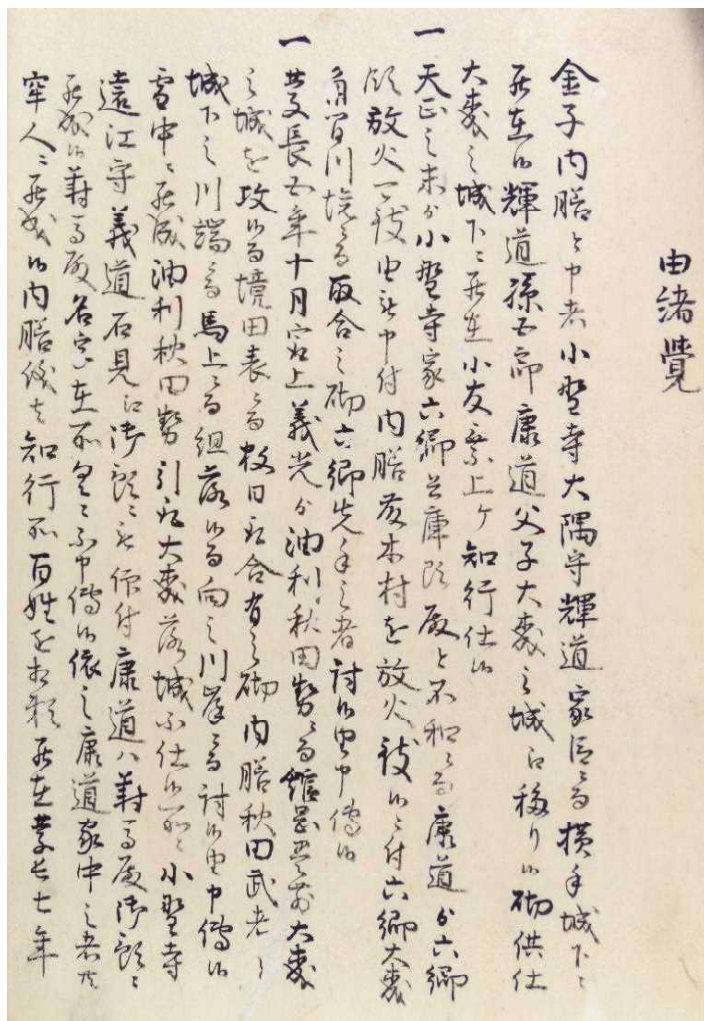 由緒覚
金子内膳と申者小野寺大隅守輝道家臣ニ而横手城下ニ
居在候輝道孫五郎康道父子大森之城江移り候砌供仕
大森之城下ニ居在小友村上ケ知行仕候
一 天正之末ゟ小野寺家六郷兵庫頭殿と不和ニ而康道ゟ六郷
領放火可致由被申付内膳 木村を放火致候ニ付六郷大森
角間川境ニ而取合之砌六郷先手之者討候由申傳候
一 慶長五年十月最上義光ゟ油利秋田勢ニ而 大森
之城を攻候而境田表ニ而数日取合有之砌内膳秋田武者と
城下之川端ニ而馬上ニ而組落候而向之川岸ニ而討候由申傳候
雪中ニ罷成油利秋田勢引取大森落城不仕候処ニ小野寺
遠江守義道石見江御預ニ被仰付康道ハ対馬殿御預ニ
罷成候対馬殿名字在所 ニ不申傳候依之康道家中之者共
窂人ニ罷成候内膳儀も知行所百姓を相頼居在慶長七年